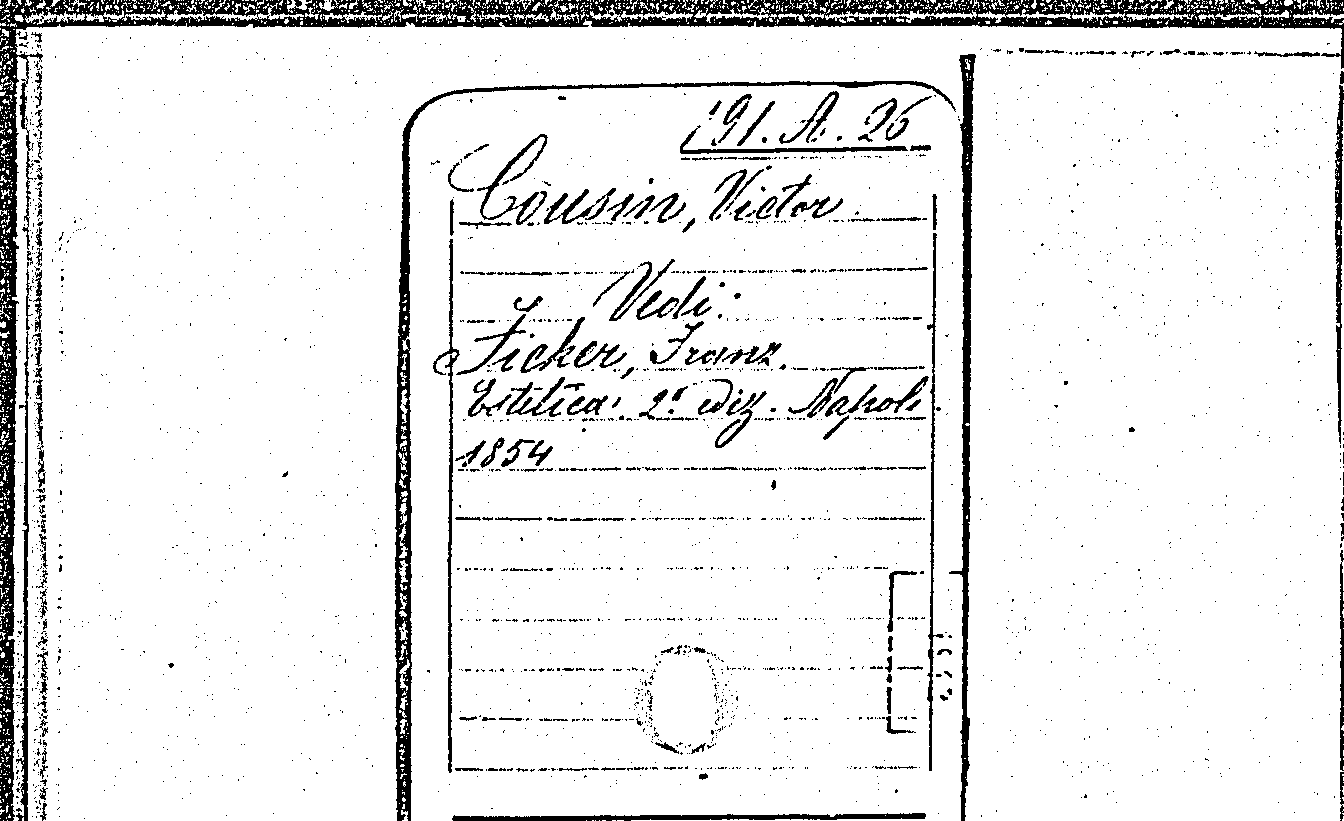 191. A. 26
Cousin, Victor
Vedi:
Ficker, Franz.
Estetica. 2ª ediz. Napoli.
1854